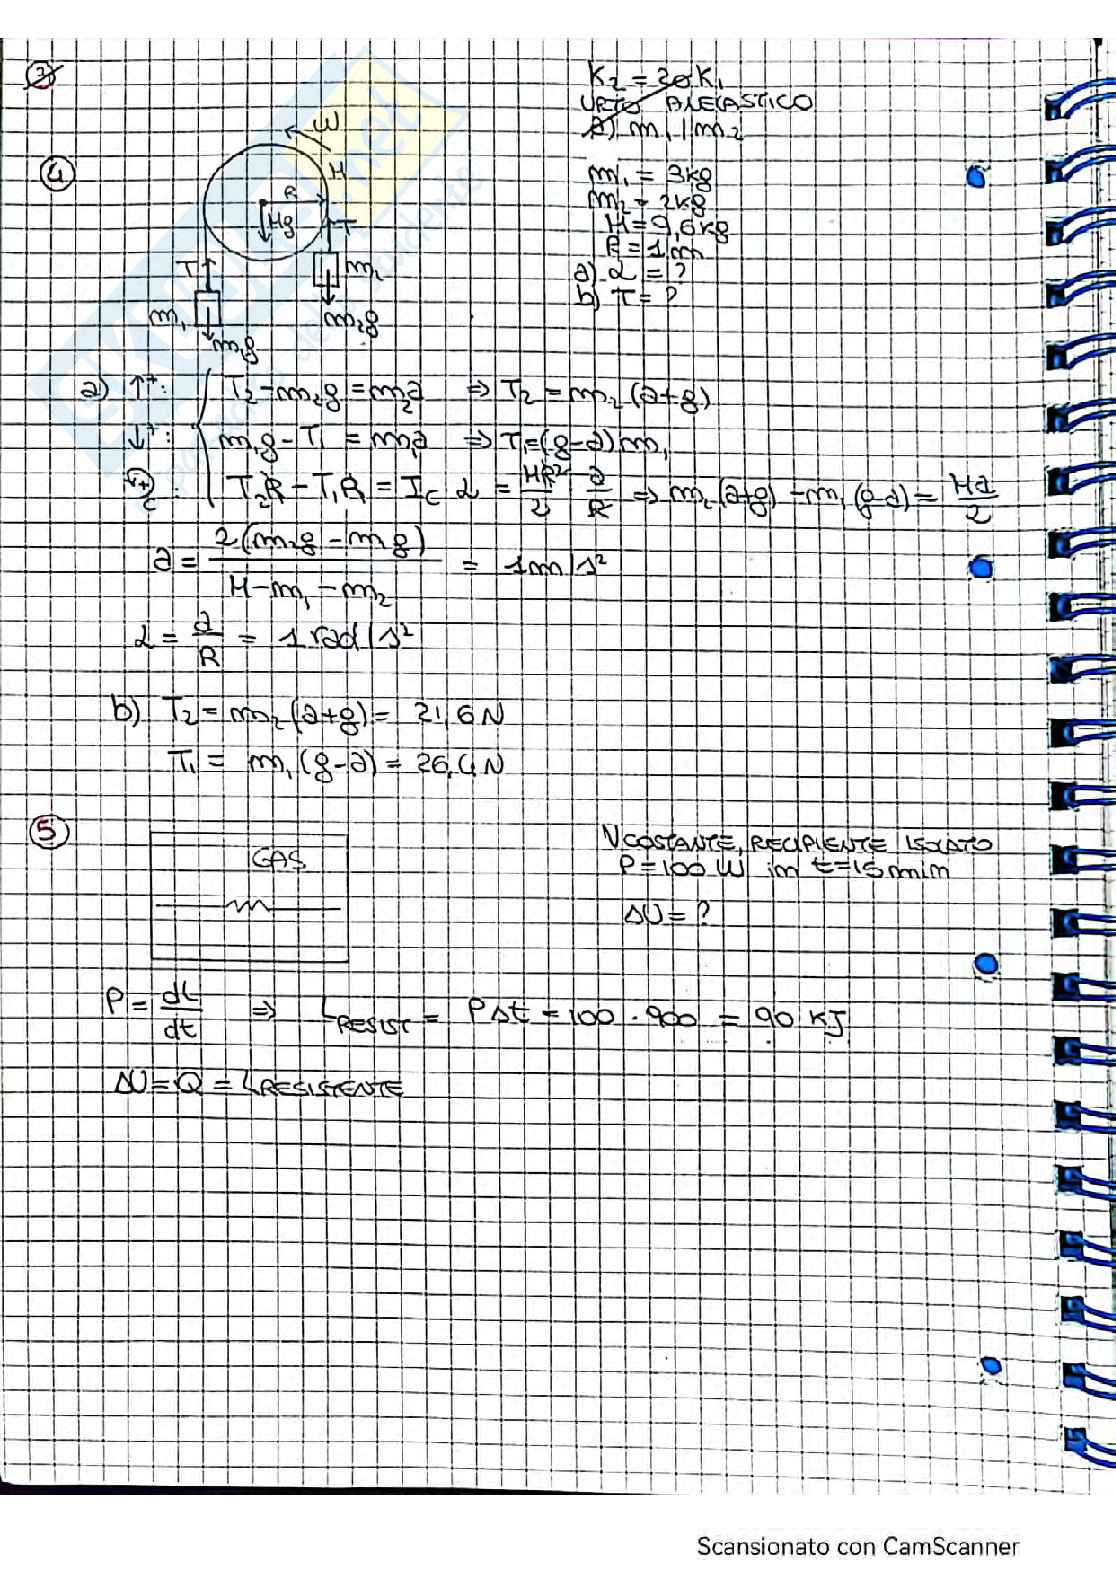 3
K₂ = 20K₁
URTO ANELASTICO
A) m₁ | m₂
4
ω
M
R
Mg
T
T
m₂
m₂g
m₁
m₁g
m₁ = 3kg
m₂ = 2kg
M = 9,6kg
R = 1m
a) α = ?
b) T = ?
a) ↑+: T₂ - m₂g = m₂a ⇒ T₂ = m₂(a+g)
↓+: m₁g - T₁ = m₁a ⇒ T₁ = (g-a)m₁
T₂R - T₁R = I_c α = MR²/2 a/R ⇒ m₂(a+g) - m₁(g-a) = Ma/2
a = 2(m₂g - m₁g)/(M - m₁ - m₂) = 1m/s²
α = a/R = 1 rad/s²
b) T₂ = m₂(a+g) = 21,6N
T₁ = m₁(g-a) = 26,4N
5
GAS
V COSTANTE, RECIPIENTE ISOLATO
P = 100 W in t = 15 min
ΔU = ?
P = dL/dt ⇒ L RESIST = PΔt = 100 · 900 = 90 KJ
ΔU = Q = L RESISTENTE
Scansionato con CamScanner